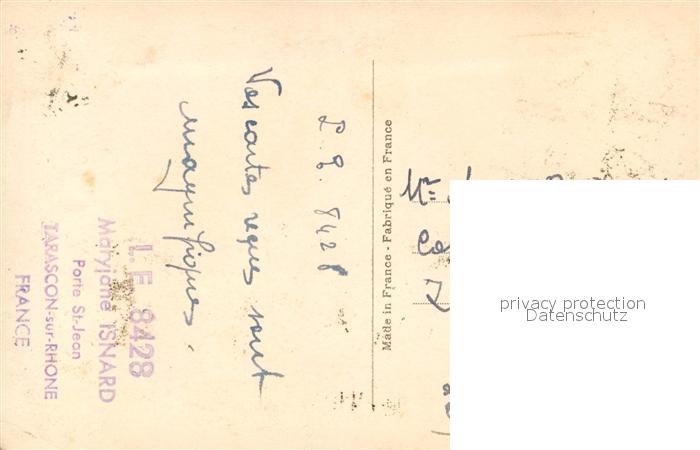 L. E. 8428
Vos cartes reçues sont
magnifiques.
L. E 8428
Maryjane ISNARD
Porte St-Jean
TARASCON-sur-RHONE
FRANCE
Made in France - Fabriqué en France
Mr
privacy protection
Datenschutz